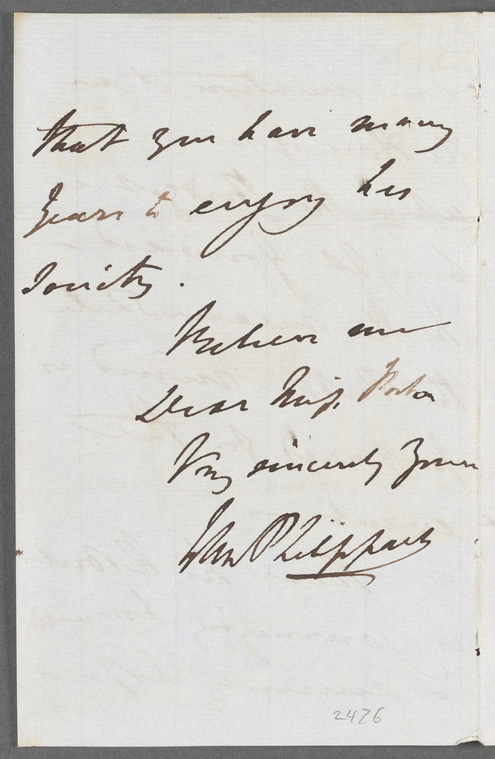 that you have many
years to enjoy his
society.
Believe me
Dear Miss Porter
Very sincerely yours
John Philippart
2476